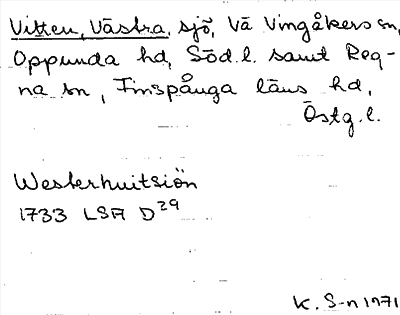 Vitten, Västra, sjö, Vä Vingåkers sn,
Oppunda hd, Söd.l. samt Reg-
na sn, Finspånga läns hd,
Östg.l.
Westerhuitsiön
1733 LSA D29
K. S-n 1971